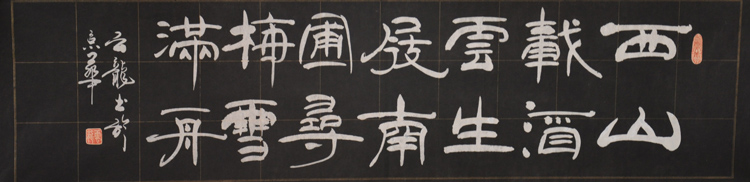 西山
載酒
雲生
屐南
圃尋
梅雪
滿舟
云龍书於
京華